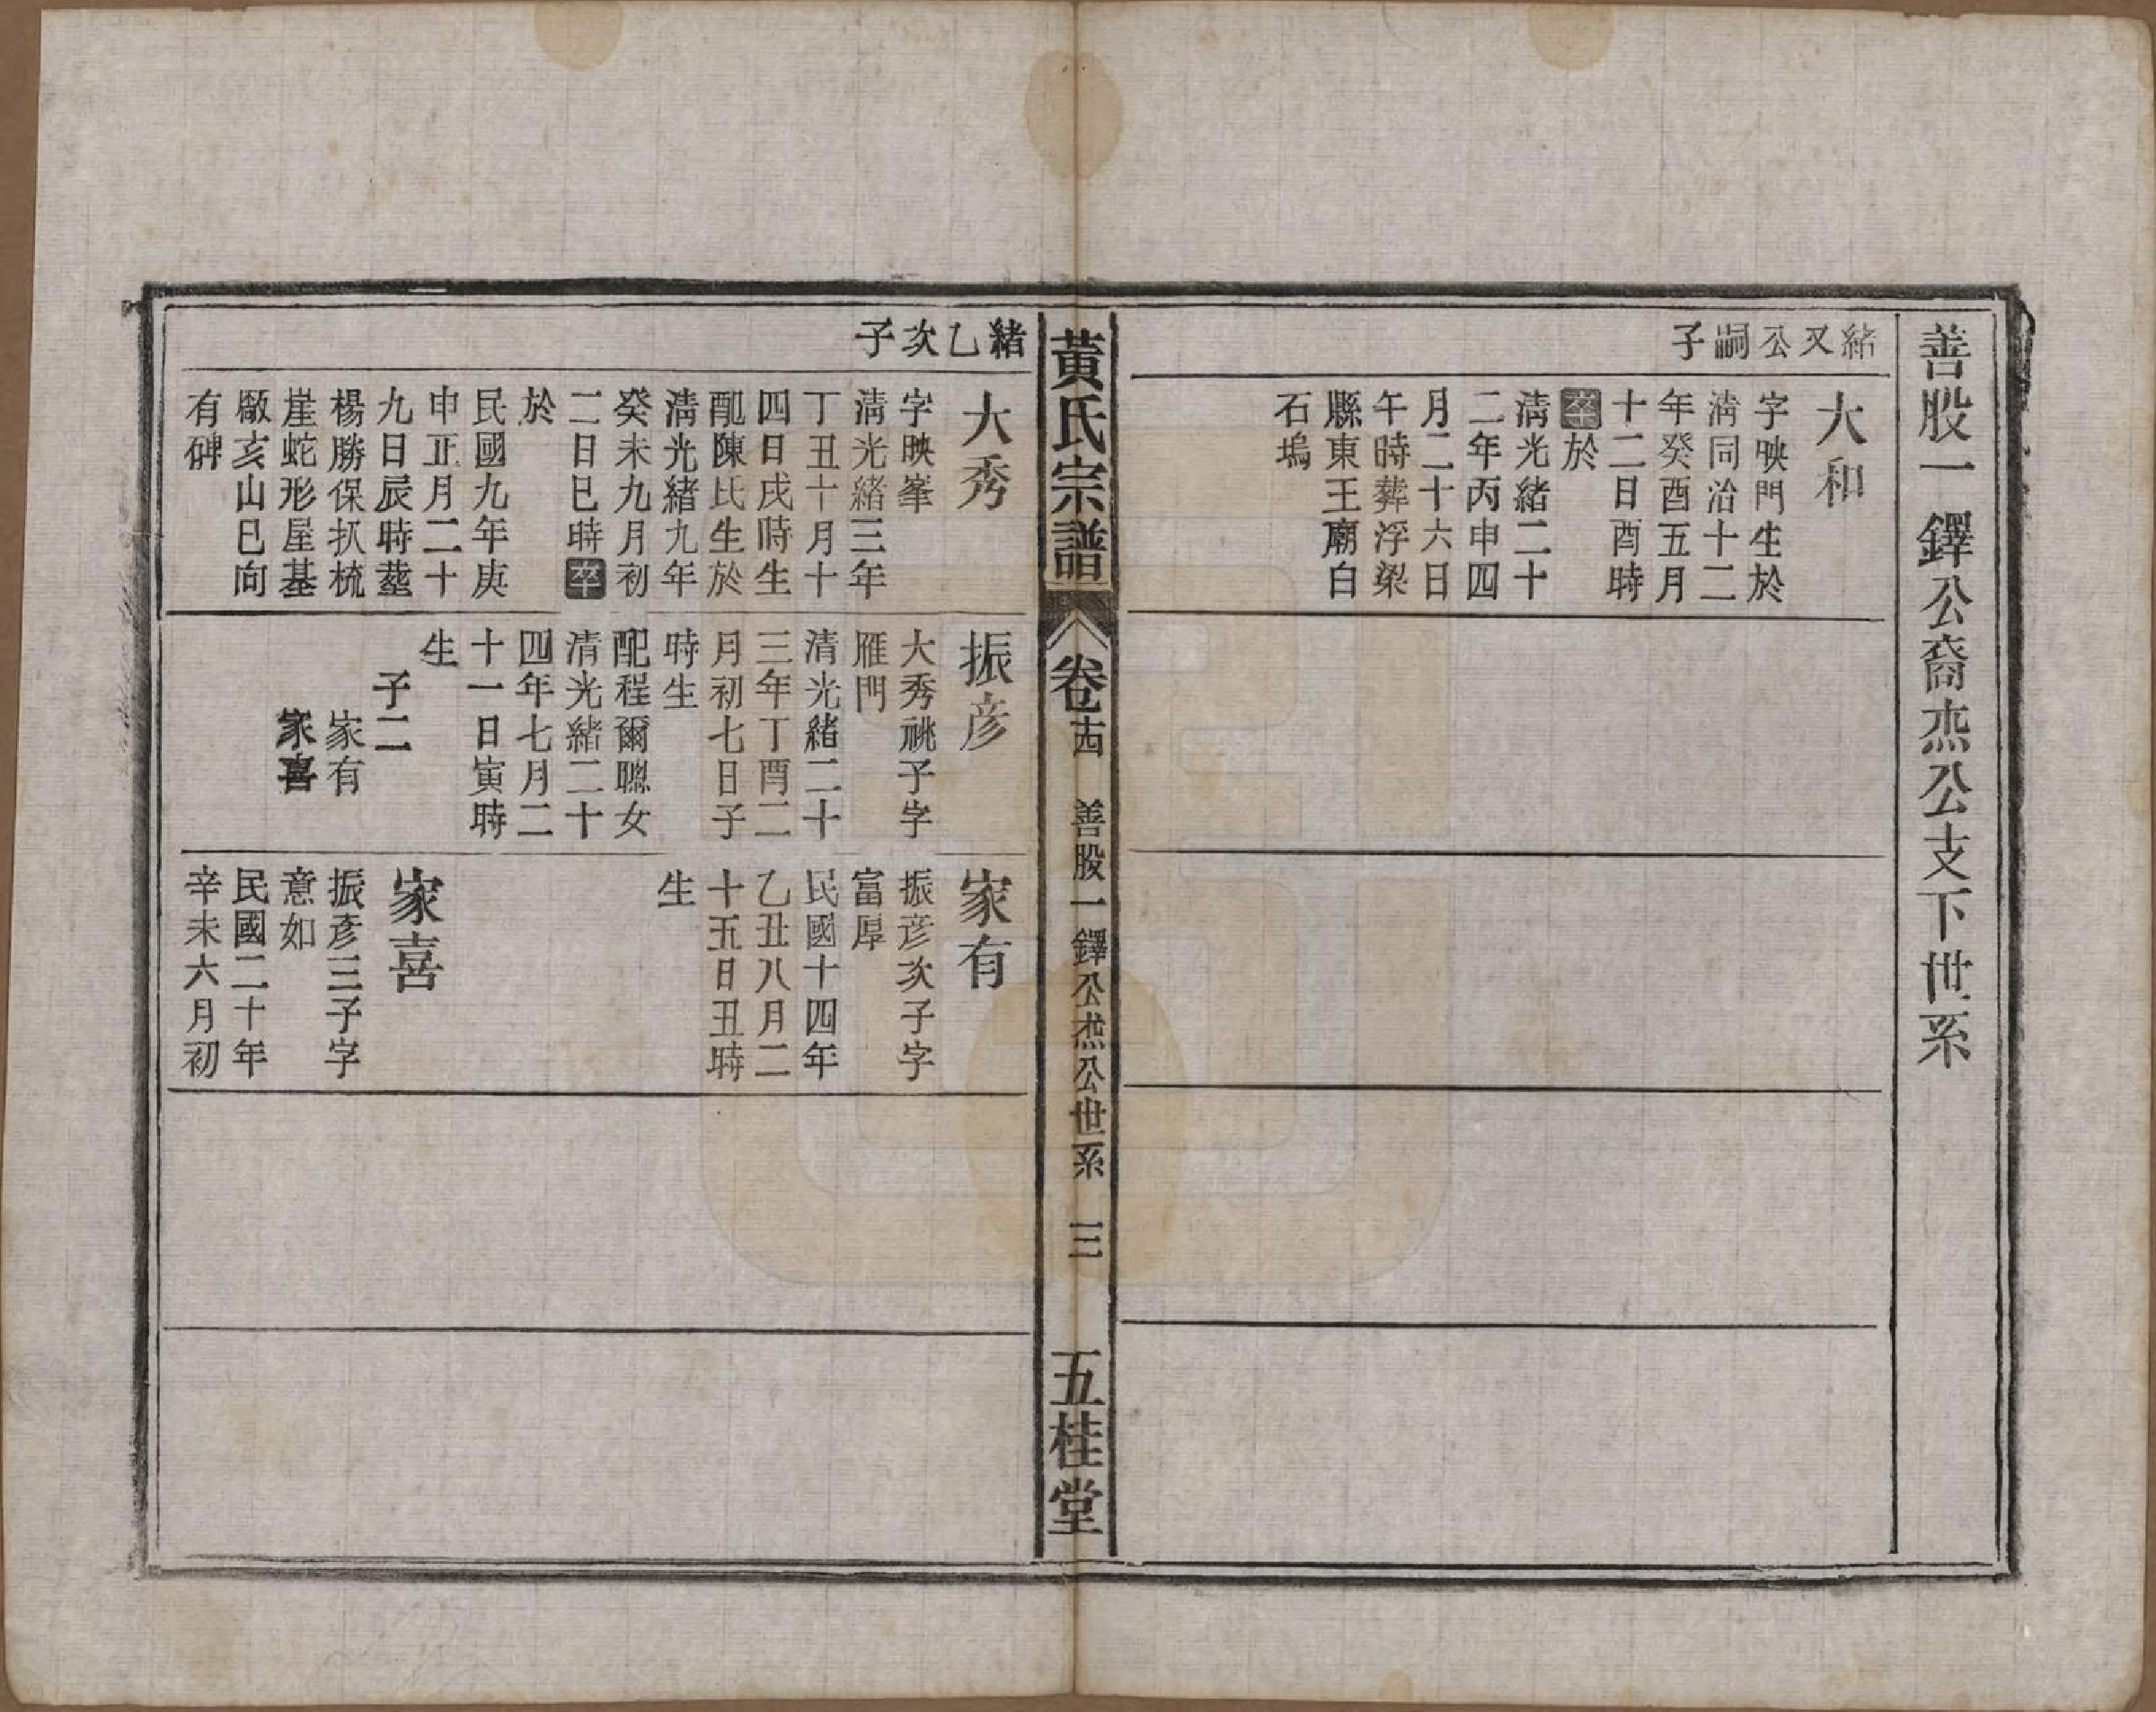 善股一鐸公裔焘公支下世系
緒又公嗣子
大和
字映門生於
淸同治十二
年癸酉五月
十二日酉時
卒於
淸光緒二十
二年丙申四
月二十六日
午時葬浮梁
縣東王廟白
石塢
黃氏宗譜
卷十四
善股一鐸公焘公世系
三
五桂堂
緒乙次子
大秀
字映峯
淸光緒三年
丁丑十月十
四日戌時生
配陳氏生於
淸光緒九年
癸未九月初
二日巳時卒
於
民國九年庚
申正月二十
九日辰時塟
楊勝保扒梳
崖蛇形屋基
厫亥山巳向
有碑
振彦
大秀祧子字
雁門
淸光緒二十
三年丁酉二
月初七日子
時生
配程爾聰女
淸光緒二十
四年七月二
十一日寅時
生
子二
家有
家喜
家有
振彦次子字
富厚
民國十四年
乙丑八月二
十五日丑時
生
家喜
振彦三子字
意如
民國二十年
辛未六月初